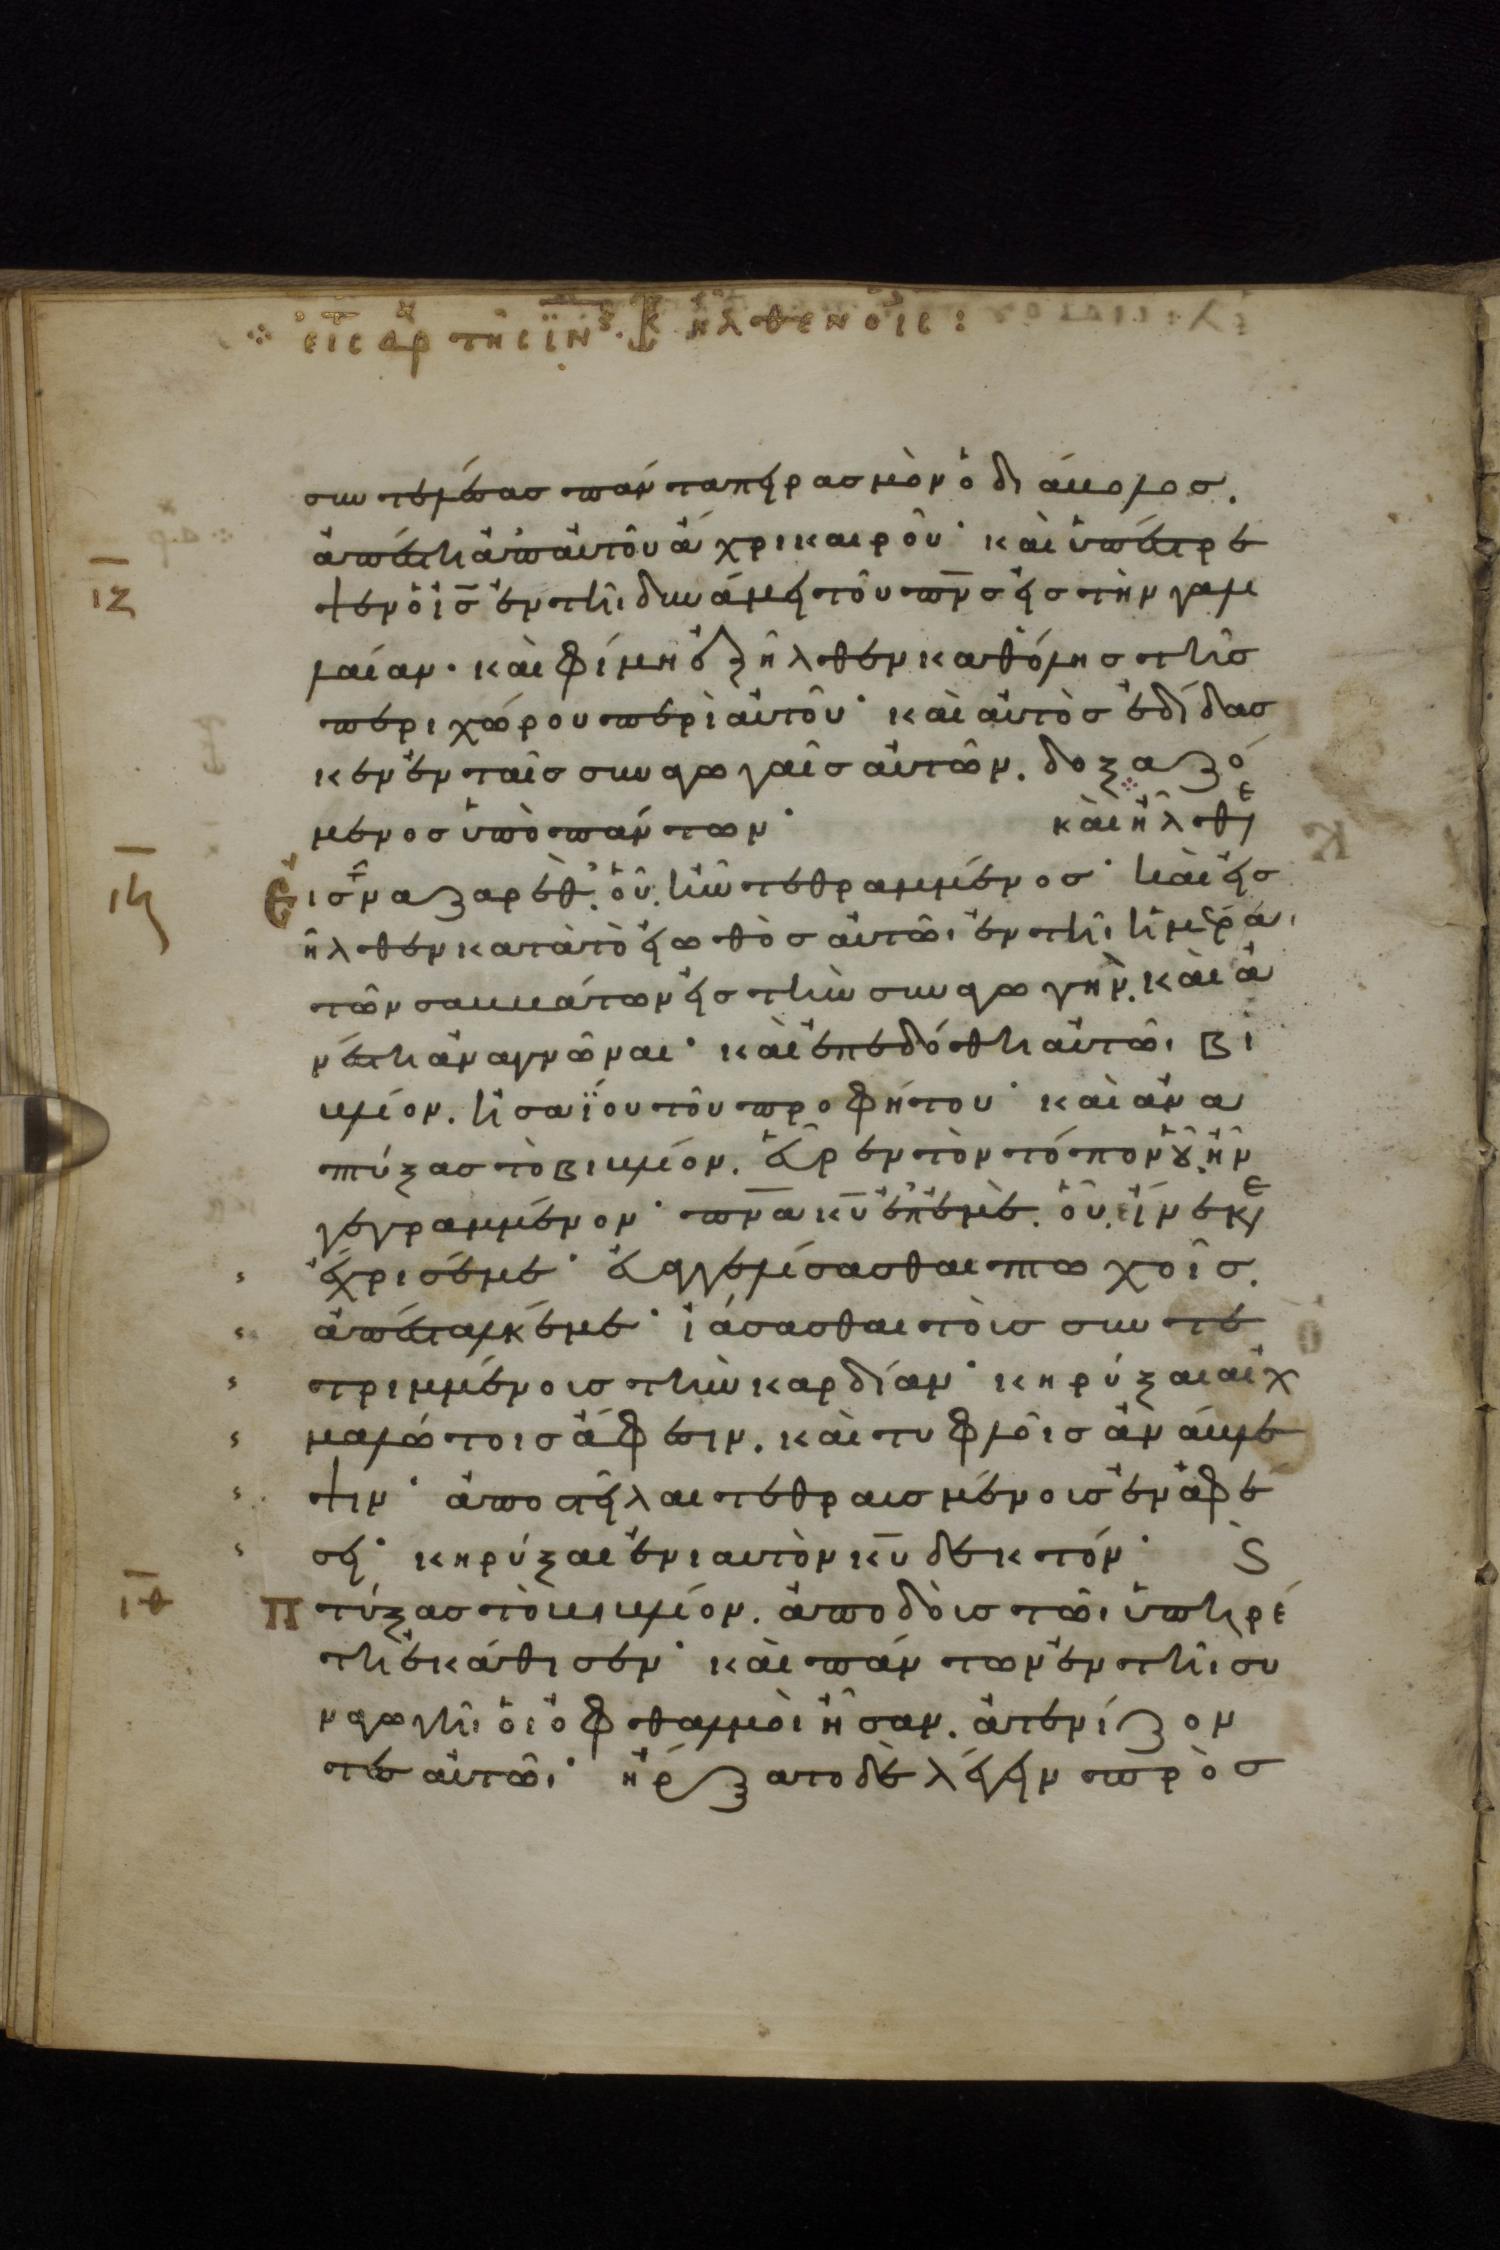 εἰς ἀρχ τῆς ἰνδ. ἦλθεν ὁ ις:
συντελέσας πάντα πειρασμὸν ὁ διάβολος.
ἀπέστη ἀπ' αὐτοῦ ἄχρι καιροῦ· καὶ ὑπέστρε
ιζ
ψεν ὁ ις ἐν τῆι δυνάμει τοῦ πνς εἰς τὴν γαλι
λαίαν· καὶ φήμη ἐξῆλθεν καθ' ὅλης τῆς
περιχώρου περὶ αὐτοῦ· καὶ αὐτὸς ἐδίδασ
κεν ἐν ταῖς συναγωγαῖς αὐτῶν. δοξαζό
μενος ὑπὸ πάντων· καὶ ἦλθεν
ιη
Εἰς τὴν ναζαρέθ. οὗ. ἦν τεθραμμένος· καὶ εἰσ
ῆλθεν κατὰ τὸ εἰωθὸς αὐτῶι ἐν τῆι ἡμέρα
τῶν σαββάτων εἰς τὴν συναγωγὴν. καὶ ἀ
νέστη ἀναγνῶναι· καὶ ἐπεδόθη αὐτῶι βι
βλίον. ἡσαΐου τοῦ προφήτου· καὶ ἀνα
πτύξας τὸ βιβλίον. εὗρεν τὸν τόπον οὗ ἦν
γεγραμμένον· πνα κυ ἐπ' ἐμὲ. οὗ. εἵνεκεν
ἔχρισέ με· εὐαγγελίσασθαι πτωχοῖς.
ἀπέσταλκέ με· ἰάσασθαι τοὺς συντε
τριμμένους τὴν καρδίαν· κηρύξαι αἰχ
μαλώτοις ἄφεσιν. καὶ τυφλοῖς ἀνάβλε
ψιν· ἀποστεῖλαι τεθραυσμένους ἐν ἀφέ
σει· κηρύξαι ἐνιαυτὸν κυ δεκτόν· Ϛ
ιθ
Πτύξας τὸ βιβλίον. ἀποδοὺς τῶι ὑπηρέ
τη ἐκάθισεν· καὶ πάντων ἐν τῆι συ
ναγωγῆι οἱ ὀφθαλμοὶ ἦσαν. ἀτενίζον
τες αὐτῶι· ἤρξατο δὲ λέγειν πρὸς